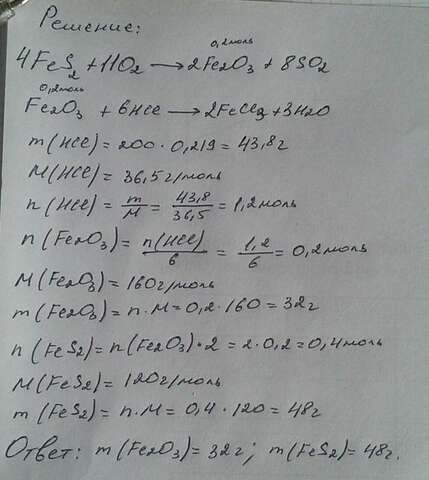 Решение:
0,2моль
4FeS2 + 11O2 → 2Fe2O3 + 8SO2
0,2моль
Fe2O3 + 6HCl → 2FeCl3 + 3H2O
m(HCl) = 200 · 0,219 = 43,8г
M(HCl) = 36,5г/моль
n(HCl) = m/M = 43,8/36,5 = 1,2моль
n(Fe2O3) = n(HCl)/6 = 1,2/6 = 0,2моль
M(Fe2O3) = 160г/моль
m(Fe2O3) = n·M = 0,2 · 160 = 32г
n(FeS2) = n(Fe2O3)·2 = 2·0,2 = 0,4моль
M(FeS2) = 120г/моль
m(FeS2) = n·M = 0,4 · 120 = 48г
Ответ: m(Fe2O3) = 32г; m(FeS2) = 48г.